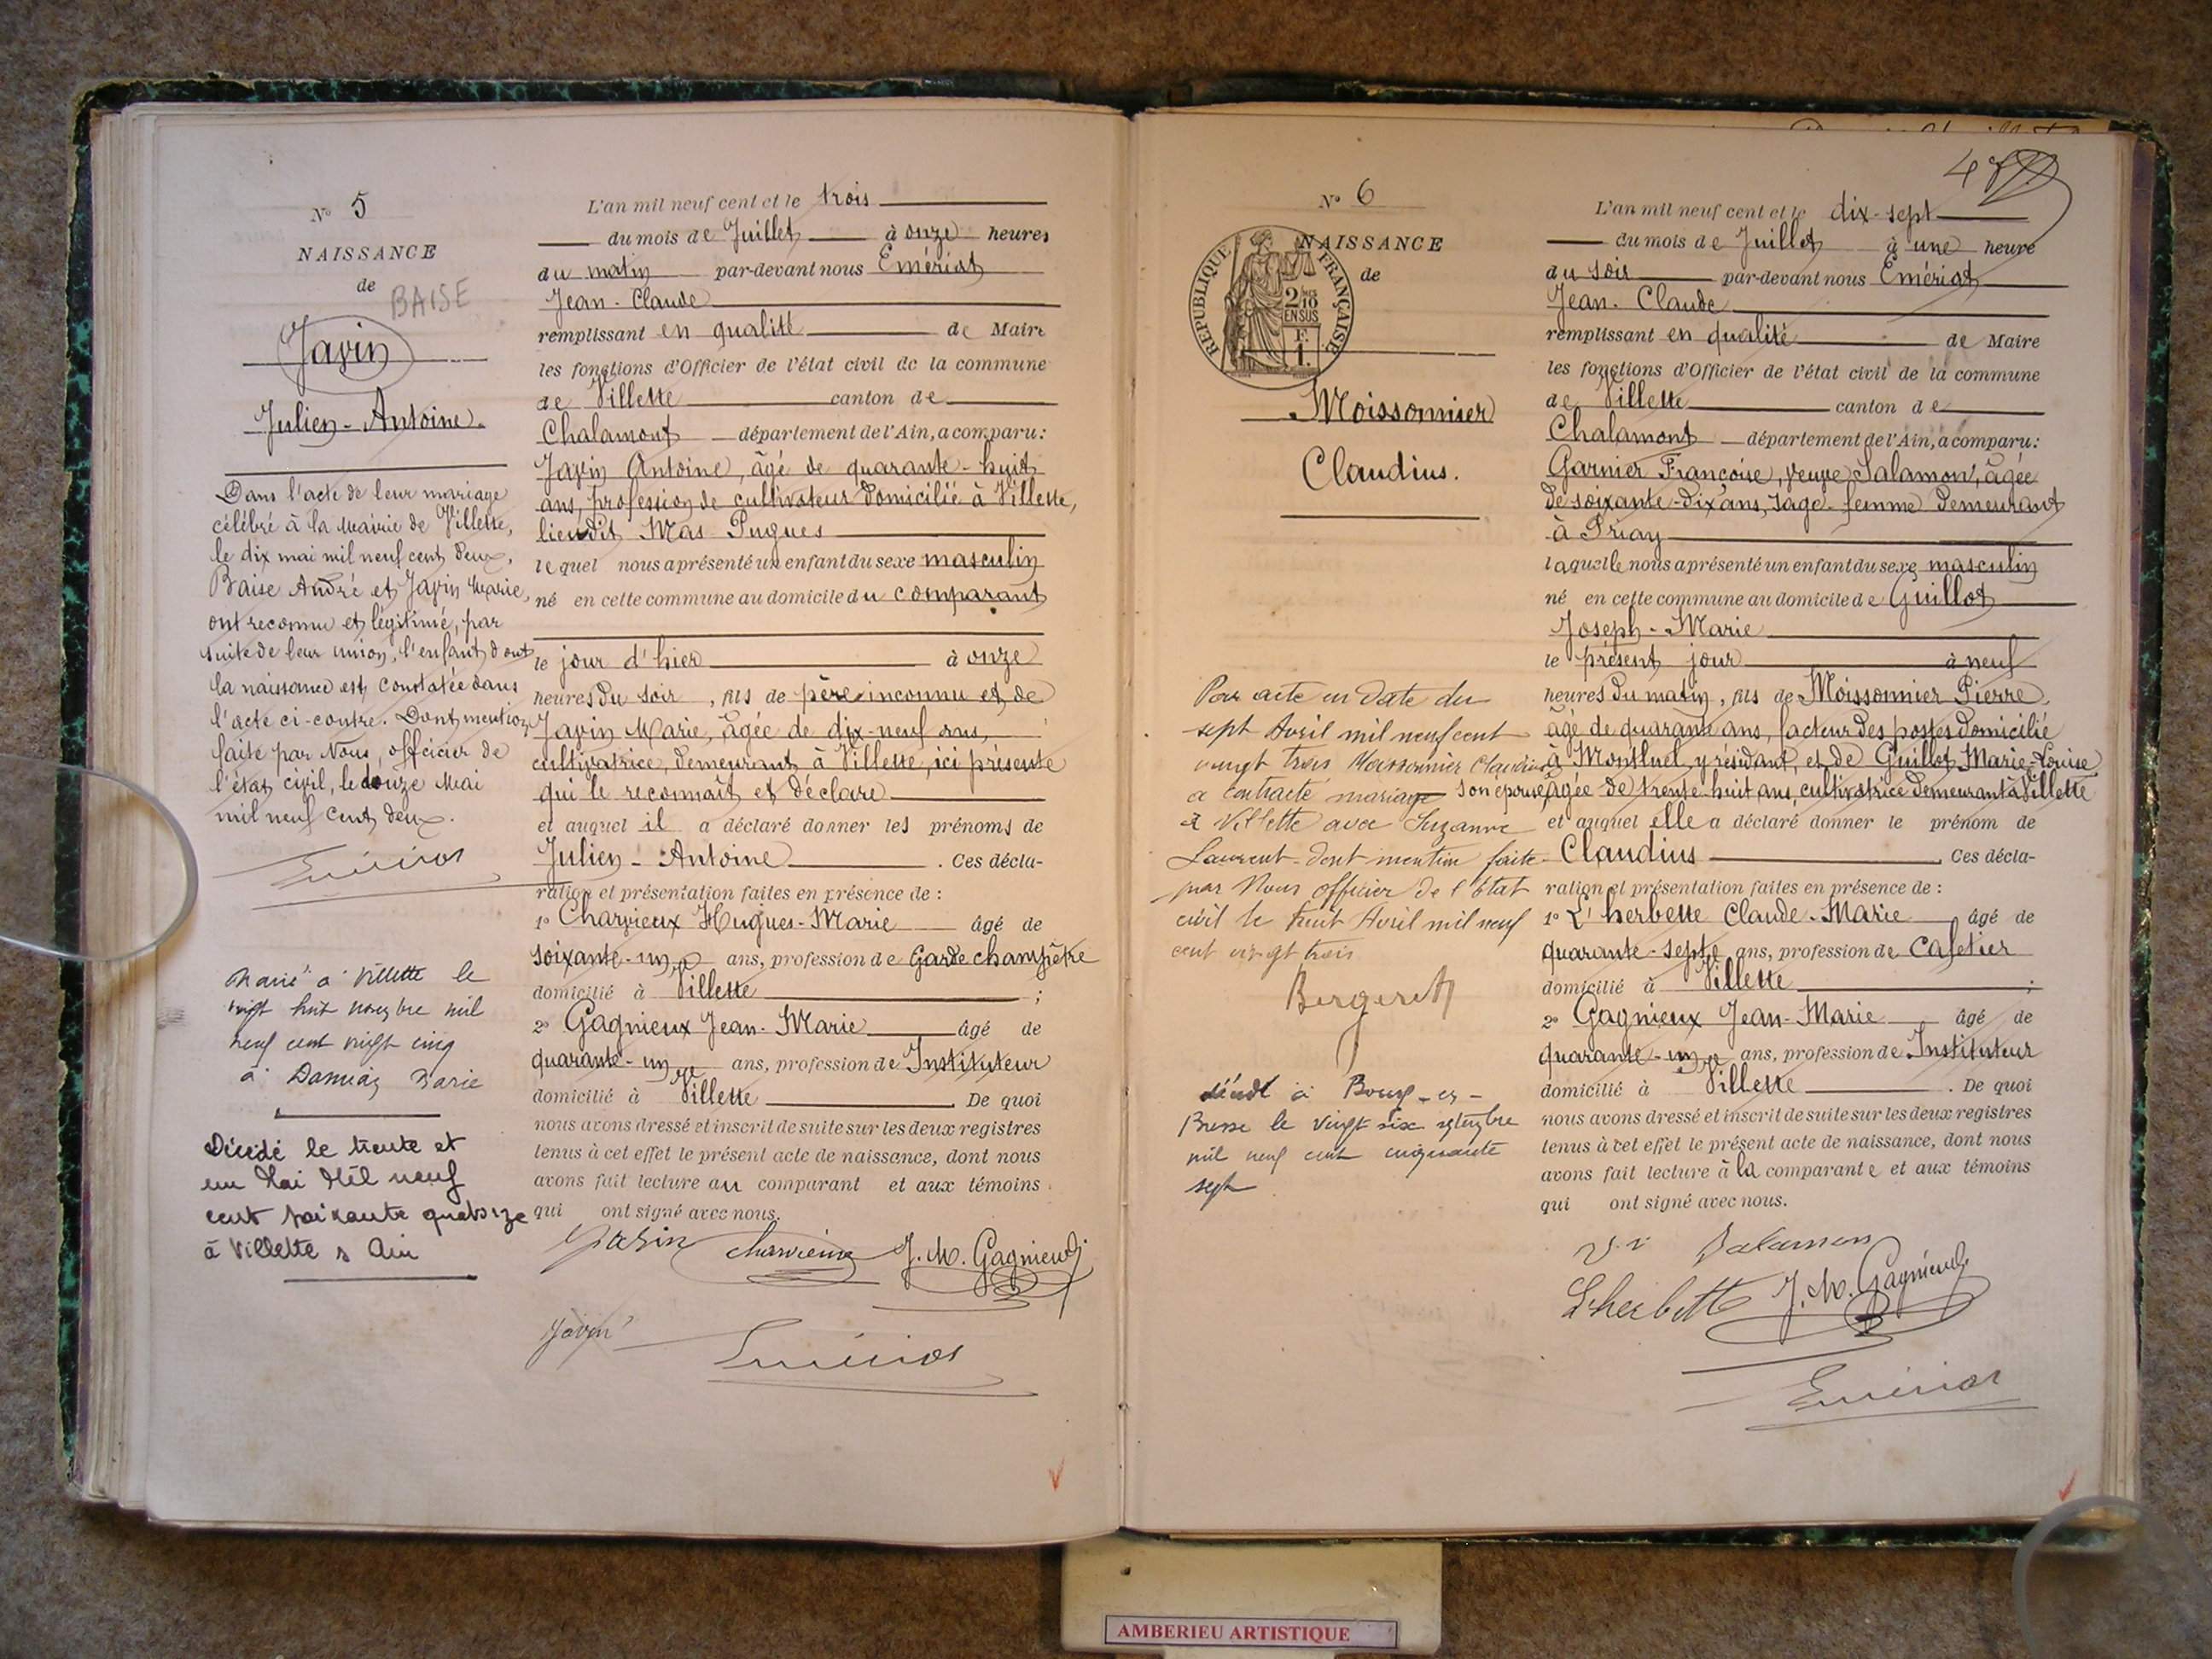 N° 5
NAISSANCE
de
BAISE
Javin
Julien-Antoine.
Dans l'acte de leur mariage
célébré à la Mairie de Villette,
le dix mai mil neuf cent deux,
Baise André et Javin Marie,
ont reconnu et légitimé, par
suite de leur union, l'enfant dont
la naissance est constatée dans
l'acte ci-contre. Dont mention
faite par Nous, officier de
l'état civil, le douze Mai
mil neuf cent deux.
Emériat
Marié à Villette le
vingt huit novembre mil
neuf cent vingt cinq
à Marie
Décédé le trente et
un Mai Mil neuf
cent soixante quatorze
à Villette s Ain
L'an mil neuf cent et le trois
du mois de Juillet à onze heures
du matin par-devant nous Emériat
Jean-Claude
remplissant en qualité de Maire
les fonctions d'Officier de l'état civil de la commune
de Villette canton de
Chalamont département de l'Ain, a comparu:
Javin Antoine, âgé de quarante-huit
ans, profession de cultivateur domicilié à Villette,
lieudit Mas Pugues
lequel nous a présenté un enfant du sexe masculin
né en cette commune au domicile du comparant
le jour d'hier à onze
heures du soir, fils de père inconnu et de
Javin Marie, âgée de dix-neuf ans,
cultivatrice, demeurant à Villette, ici présente
qui le reconnaît et déclare
et auquel il a déclaré donner les prénoms de
Julien-Antoine. Ces décla-
ration et présentation faites en présence de :
1° Charvieux Hugues-Marie âgé de
soixante-un ans, profession de Garde champêtre
domicilié à Villette ;
2° Gagnieux Jean-Marie âgé de
quarante-un ans, profession de Instituteur
domicilié à Villette. De quoi
nous avons dressé et inscrit de suite sur les deux registres
tenus à cet effet le présent acte de naissance, dont nous
avons fait lecture au comparant et aux témoins
qui ont signé avec nous.
Javin Charvieux J. M. Gagnieux
Javin
Emériat
47
N° 6
NAISSANCE
de
RÉPUBLIQUE FRANÇAISE
2/10
EN SUS
F.
1.
Moissonnier
Claudius.
Par acte en date du
sept Avril mil neuf cent
vingt trois Moissonnier Claudius
a contracté mariage
à Villette avec Suzanne
Laurent. dont mention faite
par Nous officier de l'état
civil le huit Avril mil neuf
cent vingt trois
Bergeret
décédé à Bourg-en-
Bresse le vingt six septembre
mil neuf cent cinquante
sept
L'an mil neuf cent et le dix-sept
du mois de Juillet à une heure
du soir par-devant nous Emériat
Jean-Claude
remplissant en qualité de Maire
les fonctions d'Officier de l'état civil de la commune
de Villette canton de
Chalamont département de l'Ain, a comparu:
Garnier Françoise, veuve Salamon, âgée
de soixante-dix ans, sage-femme demeurant
à Priay
laquelle nous a présenté un enfant du sexe masculin
né en cette commune au domicile de Guillot
Joseph-Marie
le présent jour à neuf
heures du matin, fils de Moissonnier Pierre,
âgé de quarante ans, facteur des postes domicilié
à Montluel y résidant, et de Guillot Marie-Louise
son épouse, âgée de trente huit ans, cultivatrice demeurant à Villette
et auquel elle a déclaré donner le prénom de
Claudius. Ces décla-
ration et présentation faites en présence de :
1° L'herbette Claude-Marie âgé de
quarante-sept ans, profession de Cafetier
domicilié à Villette ;
2° Gagnieux Jean-Marie âgé de
quarante-un ans, profession de Instituteur
domicilié à Villette. De quoi
nous avons dressé et inscrit de suite sur les deux registres
tenus à cet effet le présent acte de naissance, dont nous
avons fait lecture à la comparante et aux témoins
qui ont signé avec nous.
Ve Salamon
Lherbette J. M. Gagnieux
Emériat
AMBERIEU ARTISTIQUE